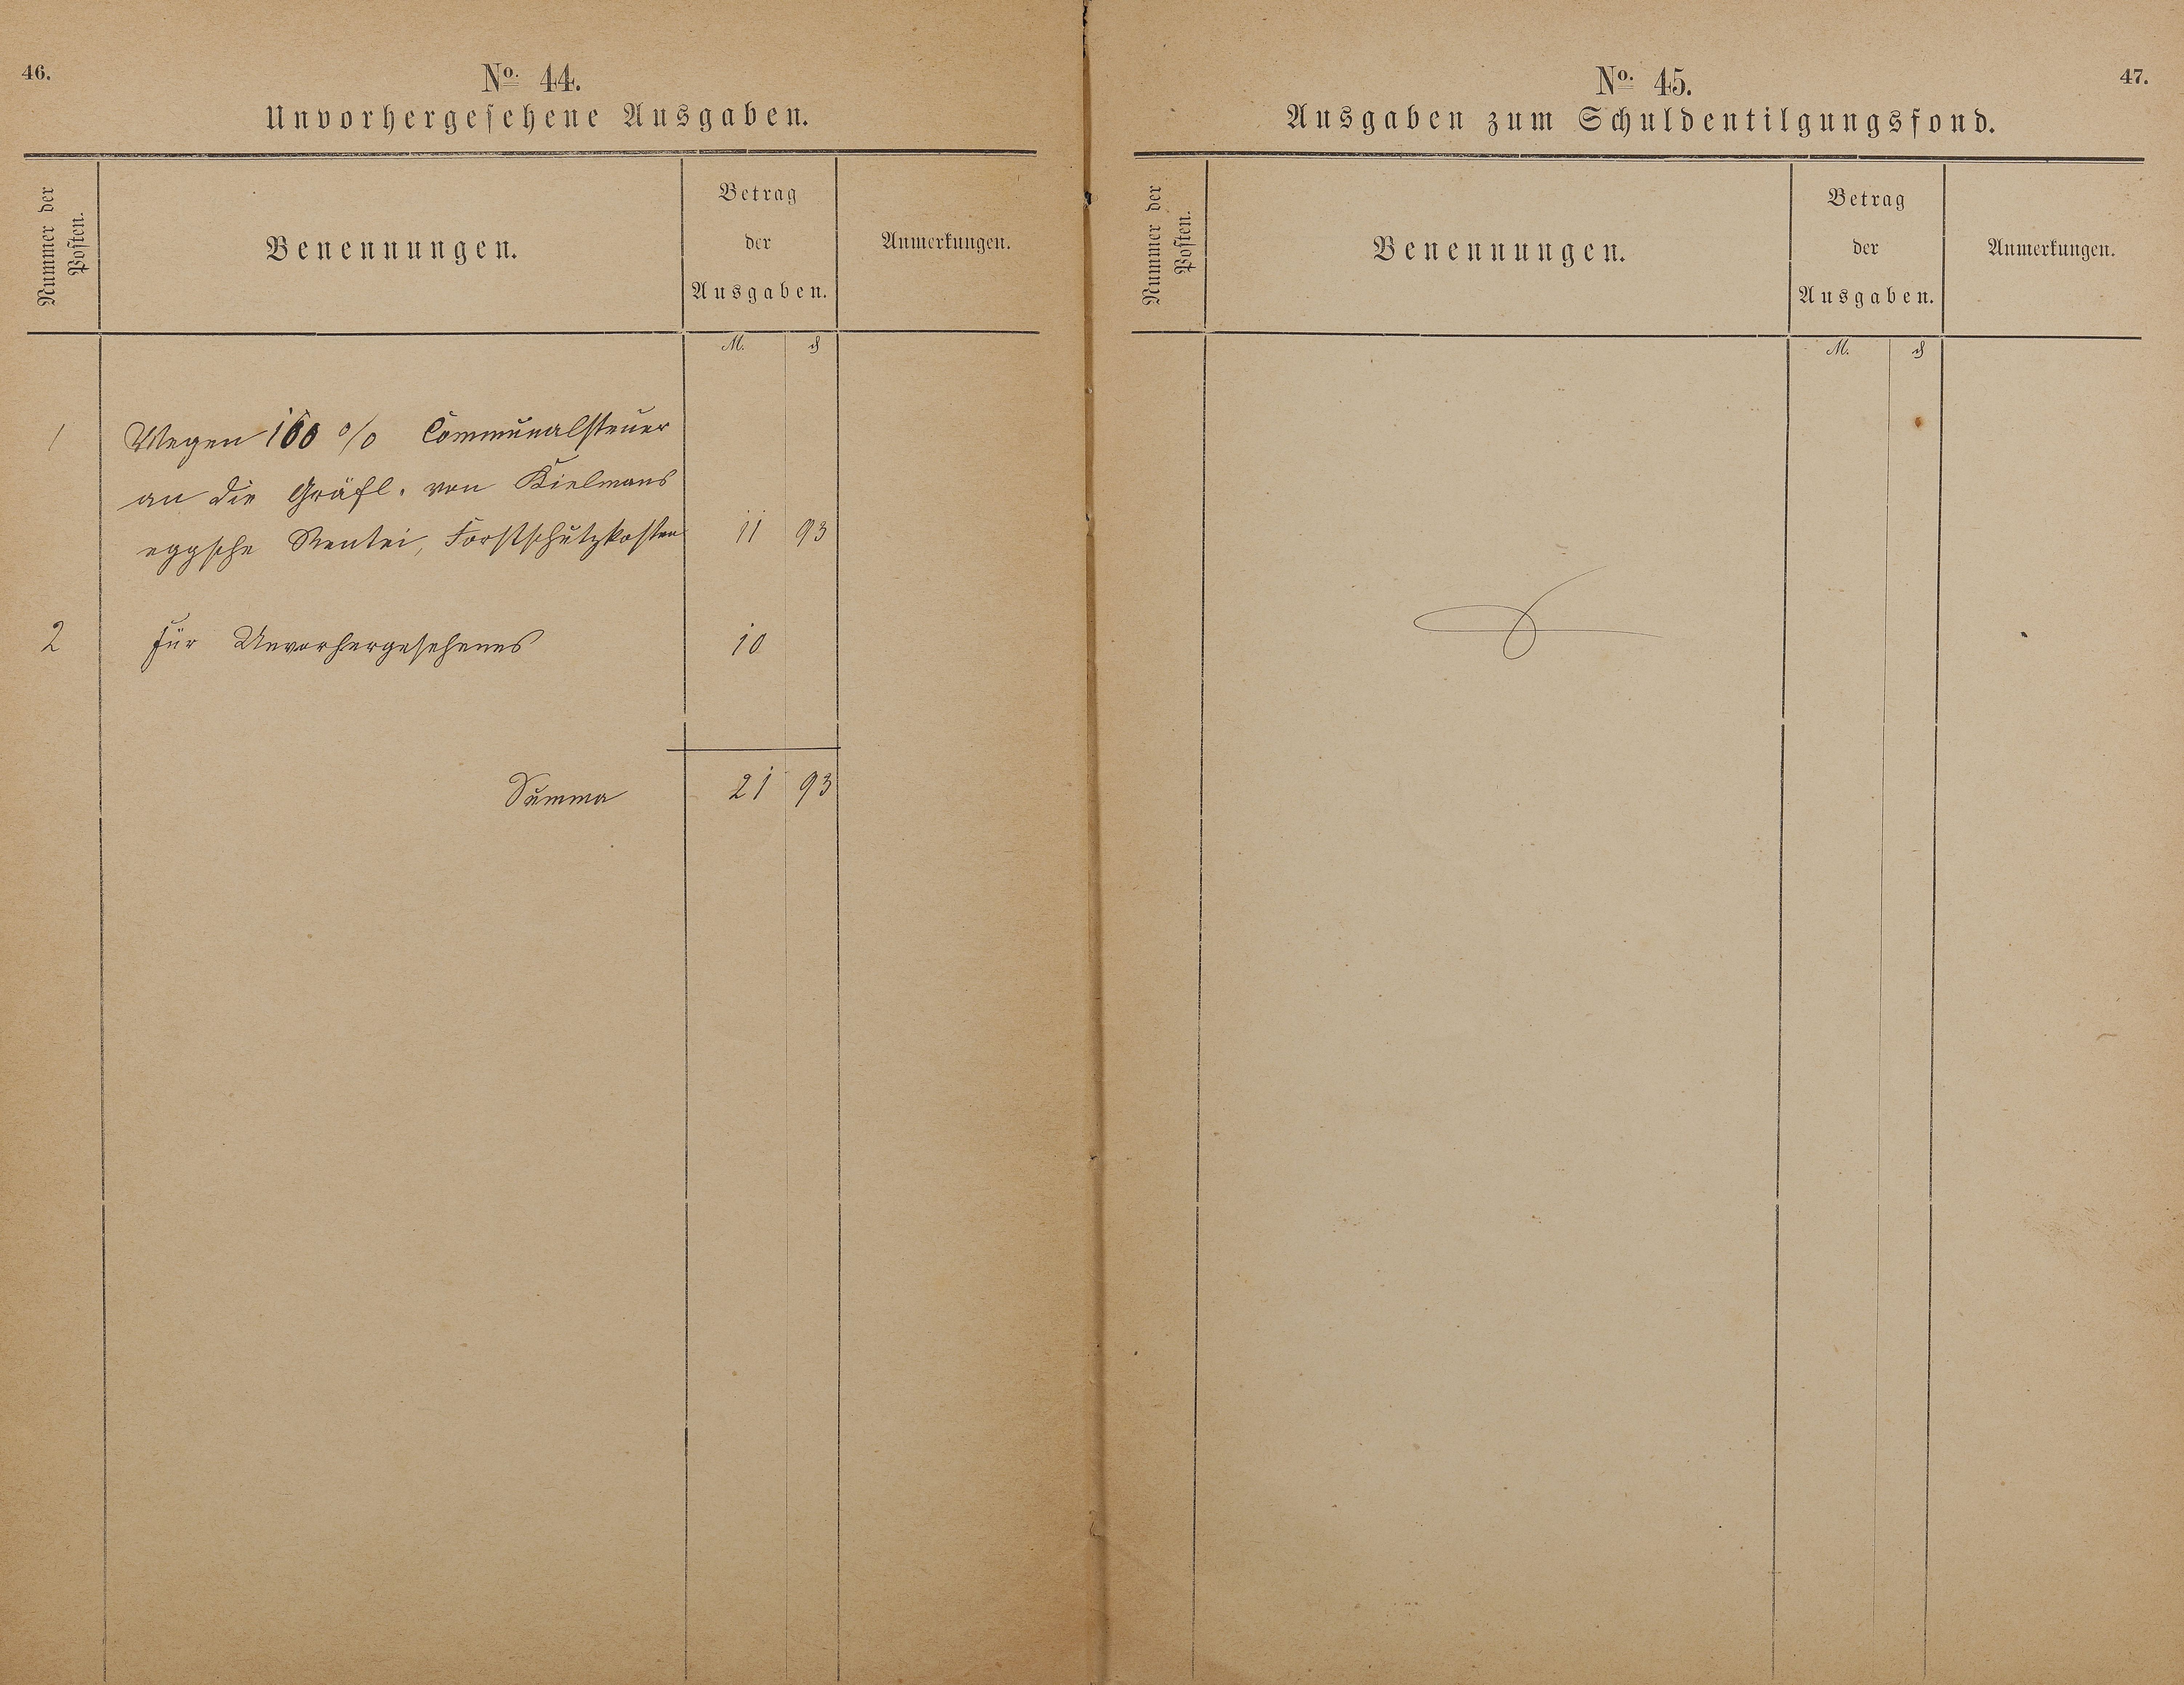 46.
No. 44.
Unvorhergesehene Ausgaben.
Nummer der
Posten.
Benennungen.
Betrag
der
Ausgaben.
Anmerkungen.
M. ₰
1 Wegen 100 % Communalsteuer
an die Gräfl. von Kielmans
eggsche Rentei, Forstschutzkosten 11 93
2 Für Unvorhergesehenes 10
Summa 21 93
47.
No. 45.
Ausgaben zum Schuldentilgungsfond.
Nummer der
Posten.
Benennungen.
Betrag
der
Ausgaben.
Anmerkungen.
M. ₰